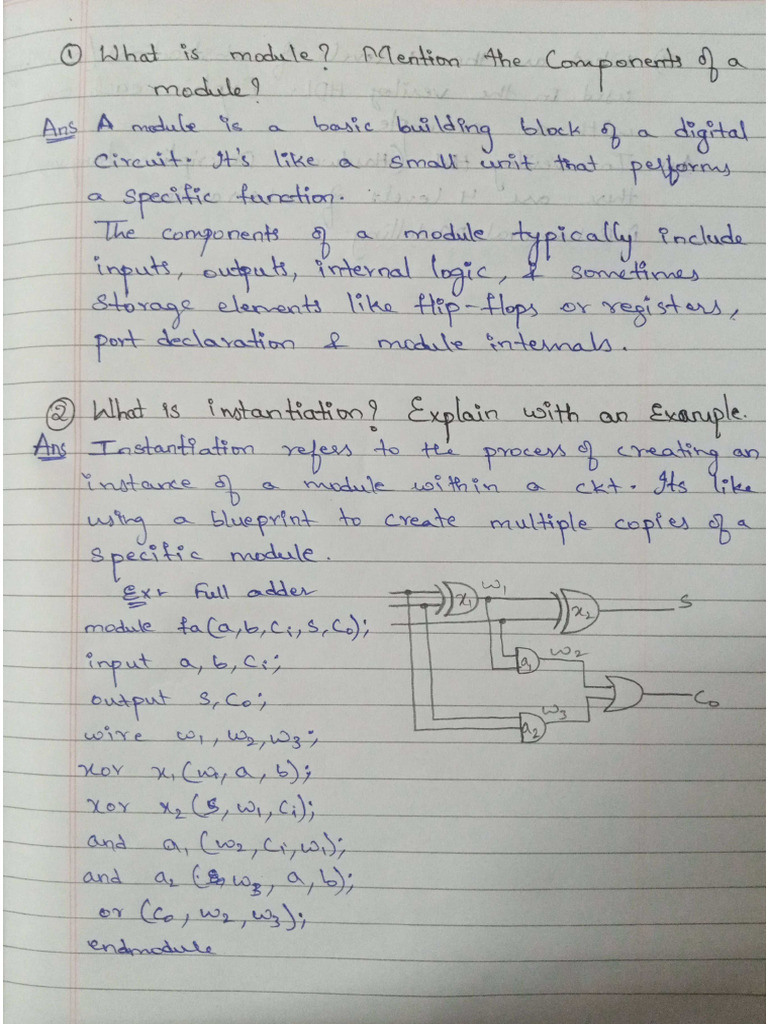 ① What is module? Mention the Components of a
module?
Ans A module is a basic building block of a digital
Circuit. It's like a small unit that performs
a specific function.
The components of a module typically include
inputs, outputs, internal logic, & sometimes
storage elements like flip-flops or registers,
port declaration & module internals.
② What is instantiation? Explain with an Example.
Ans Instantiation refers to the process of creating an
instance of a module within a ckt. Its like
using a blueprint to create multiple copies of a
specific module.
Ex:- Full adder
module fa(a,b,Ci,S,Co);
input a,b,Ci;
output S,Co;
wire w1,w2,w3;
xor x1(w1,a,b);
xor x2(S,w1,Ci);
and a1(w2,Ci,w1);
and a2(w3,a,b);
or (Co,w2,w3);
endmodule
w1
x1
x2
S
a1
w2
w3
a2
Co